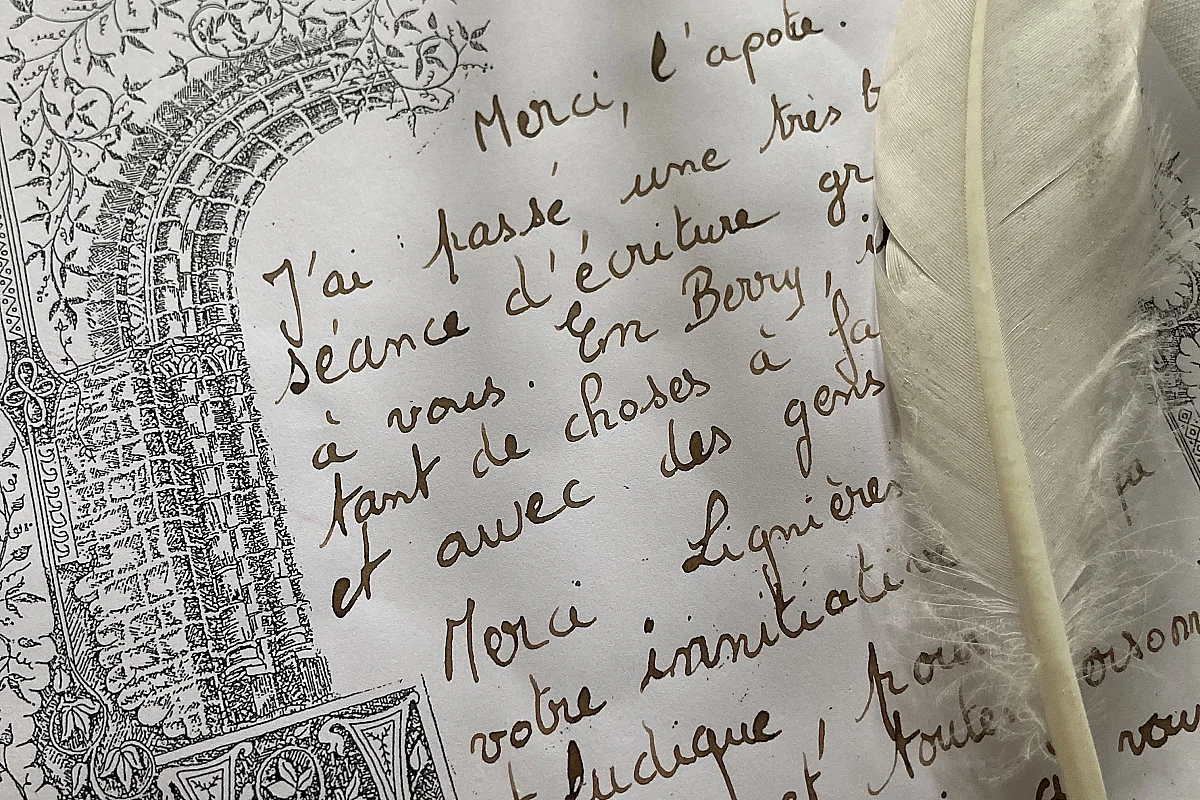 Merci, l'apote.
J'ai passé une très b
séance d'écriture gr
à vous. En Berry, i
tant de choses à fa
et avec des gens
Merci Lignières
votre innitiative
ludique, pour
et toutes vou